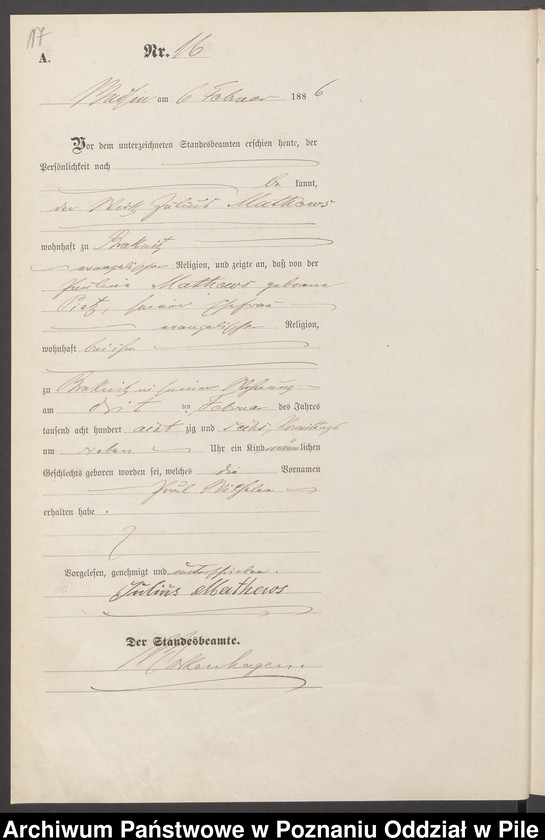 17
A.
Nr. 16
am 6 Februar 1886
Vor dem unterzeichneten Standesbeamten erschien heute, der
Persönlichkeit nach
be kannt,
der Wirth Julius Mathews
wohnhaft zu Prakwitz
evangelischer Religion, und zeigte an, daß von der
Mathews geborene
seiner Ehefrau
evangelischer Religion,
wohnhaft bei ihm
zu in seiner Wohnung
am ten Februar des Jahres
tausend acht hundert acht zig und sechs, Vormittags
um sieben Uhr ein Kind männlichen
Geschlechts geboren worden sei, welches die Vornamen
Paul Wilhelm
erhalten habe.
Vorgelesen, genehmigt und unterschrieben.
Julius Mathews
Der Standesbeamte.
Archiwum Państwowe w Poznaniu Oddział w Pile